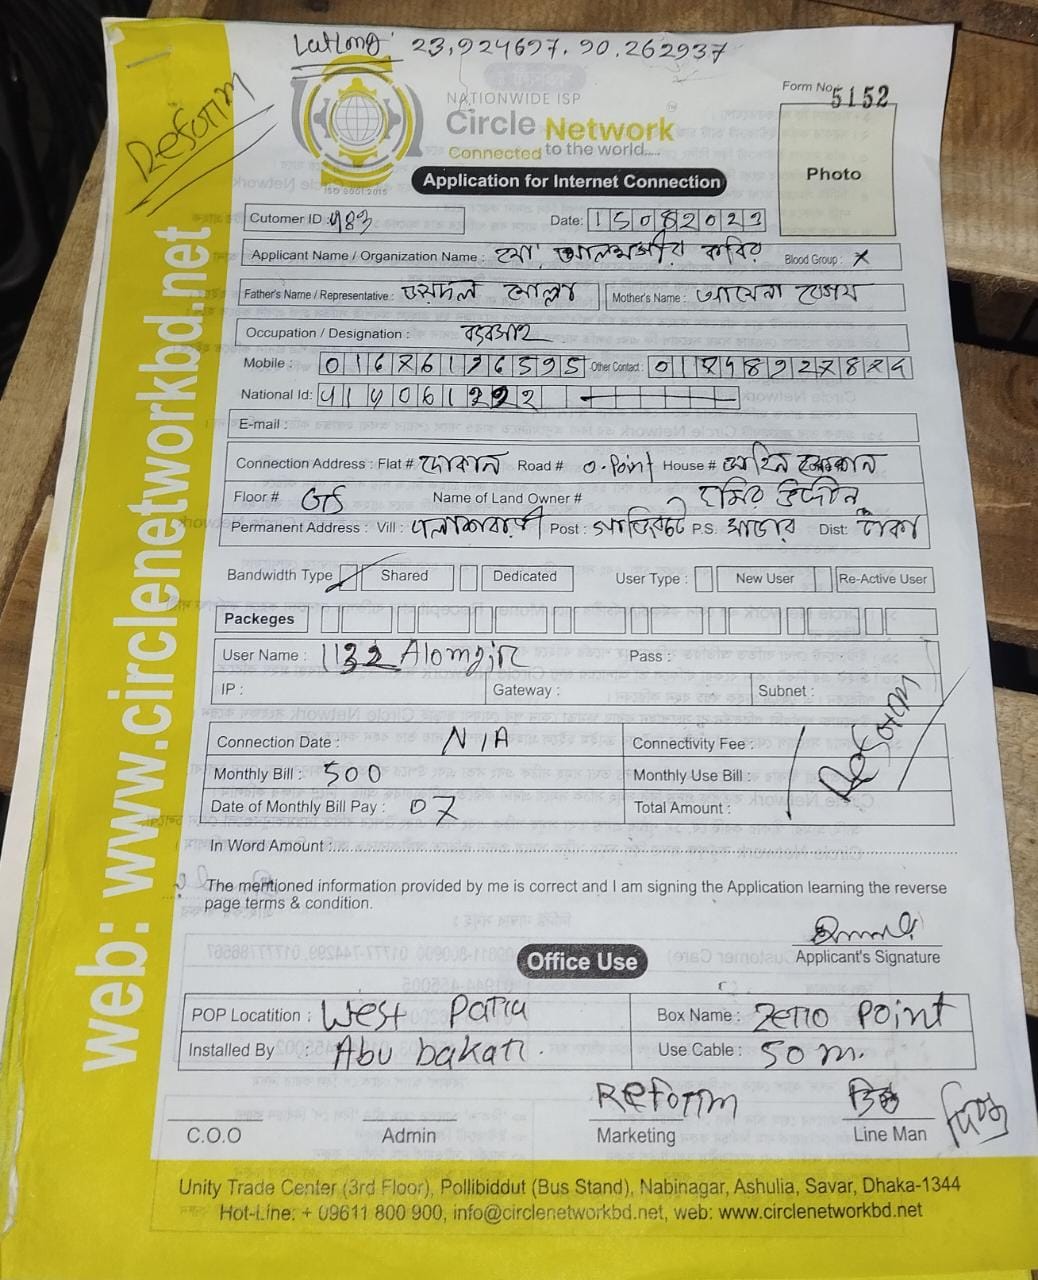 Latlong 23.924697. 90.262937
Reform
Form No. 5152
NATIONWIDE ISP
Circle Network
Connected to the world....
ISO 9001:2015
Photo
Application for Internet Connection
Cutomer ID : 983 Date: 15082023
Applicant Name / Organization Name : মো: আলমগীর কবির Blood Group : X
Father's Name / Representative : মোল্লা Mother's Name : বেগম
Occupation / Designation :
Mobile : 01676196595 Other Contact :
National Id:
E-mail :
Connection Address : Flat # দোকান Road # 0-Point House #
Floor # GF Name of Land Owner # উদ্দীন
Permanent Address : Vill : পলাশবাড়ী Post : P.S. সাভার Dist: ঢাকা
Bandwidth Type Shared Dedicated User Type : New User Re-Active User
Packeges
User Name : 1132 Alomgir Pass :
IP : Gateway : Subnet :
Connection Date : N/A Connectivity Fee :
Monthly Bill : 500 Monthly Use Bill :
Reform
Date of Monthly Bill Pay : 07 Total Amount :
In Word Amount :
The mentioned information provided by me is correct and I am signing the Application learning the reverse
page terms & condition.
Applicant's Signature
Office Use
POP Locatition : West Para Box Name : Zero Point
Installed By : Abu bakar. Use Cable : 50 m.
Reform
C.O.O Admin Marketing Line Man
Unity Trade Center (3rd Floor), Pollibiddut (Bus Stand), Nabinagar, Ashulia, Savar, Dhaka-1344
Hot-Line: + 09611 800 900, info@circlenetworkbd.net, web: www.circlenetworkbd.net
web: www.circlenetworkbd.net